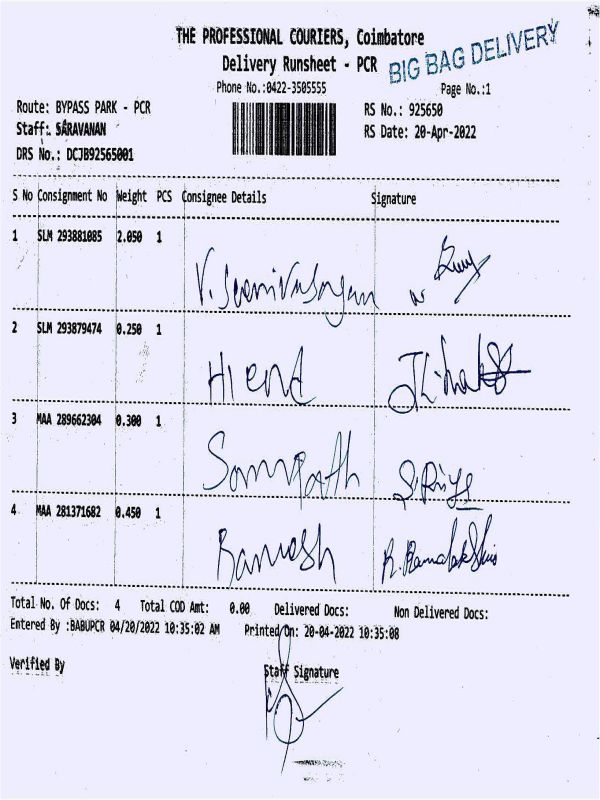 THE PROFESSIONAL COURIERS, Coimbatore
Delivery Runsheet - PCR
BIG BAG DELIVERY
Phone No.:0422-3505555
Page No.:1
Route: BYPASS PARK - PCR
RS No.: 925650
Staff: SARAVANAN
RS Date: 20-Apr-2022
DRS No.: DCJB92565001
S No Consignment No Weight PCS Consignee Details Signature
1 SLM 293881085 2.050 1 V. Seenivasagan
2 SLM 293879474 0.250 1
3 MAA 289662304 0.300 1 Sampath S. Priya
4 MAA 281371682 0.450 1 Ramesh R. Ramalakshmi
Total No. Of Docs: 4 Total COD Amt: 0.00 Delivered Docs: Non Delivered Docs:
Entered By :BABUPCR 04/20/2022 10:35:02 AM Printed On: 20-04-2022 10:35:08
Verified By Staff Signature